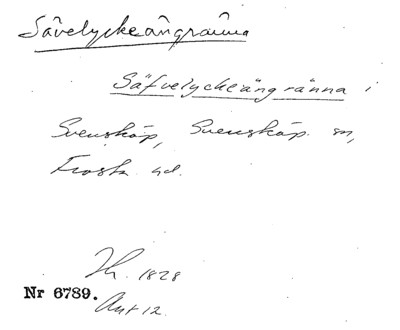 Sävelyckeängränna
Säfvelyckeängränna i
Svensköp, Svensköp sn,
Frosta hd.
Th. 1828
Nr 6789.
Akt 12.